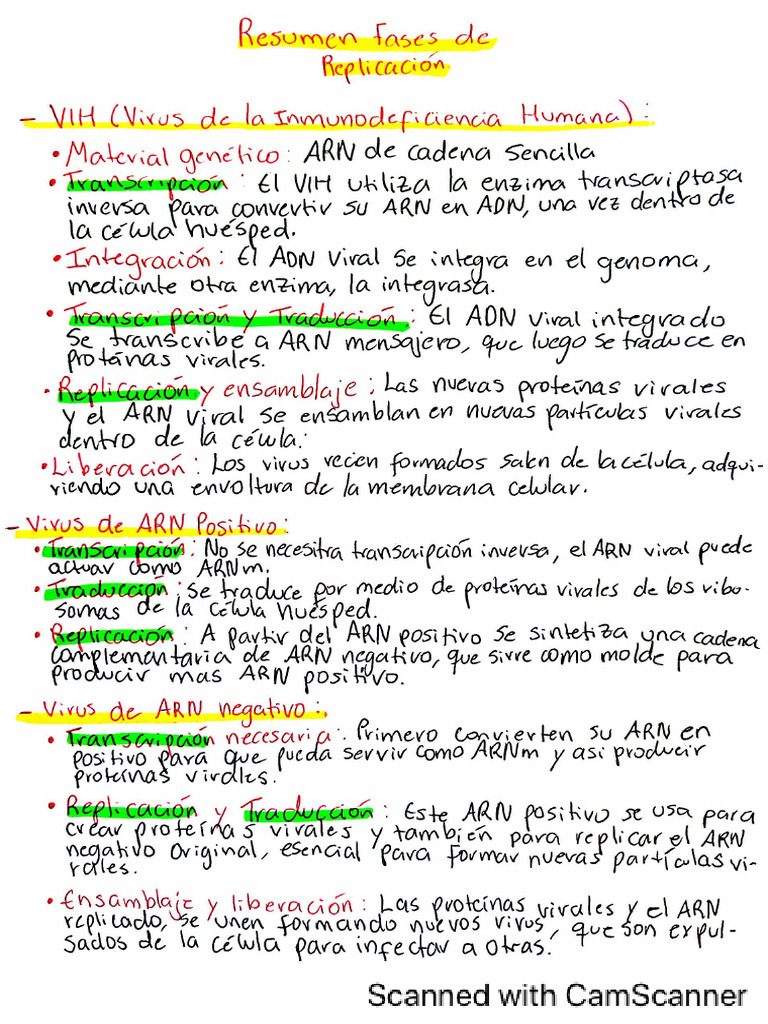 Resumen fases de
Replicación
- VIH (Virus de la Inmunodeficiencia Humana):
• Material genético: ARN de cadena sencilla
• Transcripción: El VIH utiliza la enzima transcriptasa
inversa para convertir su ARN en ADN, una vez dentro de
la célula huésped.
• Integración: El ADN viral se integra en el genoma,
mediante otra enzima, la integrasa.
• Transcripción y Traducción: El ADN viral integrado
se transcribe a ARN mensajero, que luego se traduce en
proteínas virales.
• Replicación y ensamblaje: Las nuevas proteínas virales
y el ARN viral se ensamblan en nuevas partículas virales
dentro de la célula.
• Liberación: Los virus recien formados salen de la célula, adqui-
riendo una envoltura de la membrana celular.
- Virus de ARN Positivo:
• Transcripción: No se necesitra transcripción inversa, el ARN viral puede
actuar como ARNm.
• Traducción: Se traduce por medio de proteínas virales de los ribo-
somas de la célula huésped.
• Replicación: A partir del ARN positivo se sintetiza una cadena
complementaria de ARN negativo, que sirve como molde para
producir mas ARN positivo.
- Virus de ARN negativo:
• Transcripción necesaria: Primero convierten su ARN en
positivo para que pueda servir como ARNm y asi producir
proteínas virales.
• Replicación y Traducción: Este ARN positivo se usa para
crear proteínas virales y también para replicar el ARN
negativo original, esencial para formar nuevas partículas vi-
rales.
• Ensamblaje y liberación: Las proteínas virales y el ARN
replicado, se unen formando nuevos virus, que son expul-
sados de la célula para infectar a otras.
Scanned with CamScanner